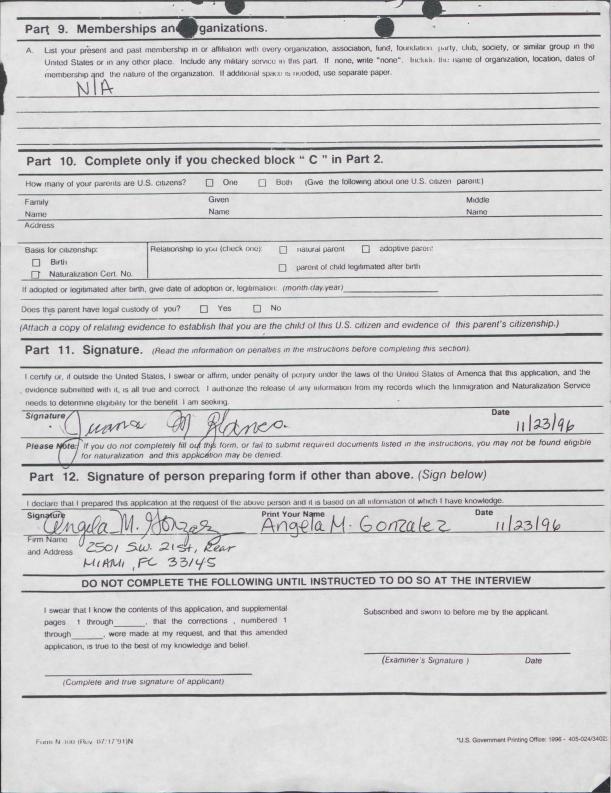 Part 9. Memberships and Organizations.
A. List your present and past membership in or affiliation with every organization, association, fund, foundation, party, club, society, or similar group in the
United States or in any other place. Include any military service in this part. If none, write "none". Include the name of organization, location, dates of
membership and the nature of the organization. If additional space is needed, use separate paper.
N/A
Part 10. Complete only if you checked block " C " in Part 2.
How many of your parents are U.S. citizens? One Both (Give the following about one U.S. citizen parent:)
Family Given Middle
Name Name Name
Address
Basis for citizenship: Relationship to you (check one): natural parent adoptive parent
Birth
parent of child legitimated after birth
Naturalization Cert. No.
If adopted or legitimated after birth, give date of adoption or, legitimation: (month-day-year)
Does this parent have legal custody of you? Yes No
(Attach a copy of relating evidence to establish that you are the child of this U.S. citizen and evidence of this parent's citizenship.)
Part 11. Signature. (Read the information on penalties in the instructions before completing this section).
I certify or, if outside the United States, I swear or affirm, under penalty of perjury under the laws of the United States of America that this application, and the
evidence submitted with it, is all true and correct. I authorize the release of any information from my records which the Immigration and Naturalization Service
needs to determine eligibility for the benefit I am seeking.
Signature Date
Juana M Blanco 11/23/96
Please Note: If you do not completely fill out this form, or fail to submit required documents listed in the instructions, you may not be found eligible
for naturalization and this application may be denied.
Part 12. Signature of person preparing form if other than above. (Sign below)
I declare that I prepared this application at the request of the above person and it is based on all information of which I have knowledge.
Signature Print Your Name Date
Angela M. Gonzalez Angela M. Gonzalez 11/23/96
Firm Name
and Address
2501 S.W. 21st, Rear
MIAMI, FC 33145
DO NOT COMPLETE THE FOLLOWING UNTIL INSTRUCTED TO DO SO AT THE INTERVIEW
I swear that I know the contents of this application, and supplemental
pages 1 through______, that the corrections , numbered 1
through______, were made at my request, and that this amended
application, is true to the best of my knowledge and belief.
(Complete and true signature of applicant)
Subscribed and sworn to before me by the applicant.
(Examiner's Signature ) Date
Form N-400 (Rev. 07/17/91)N
*U.S. Government Printing Office: 1996 - 405-024/3402